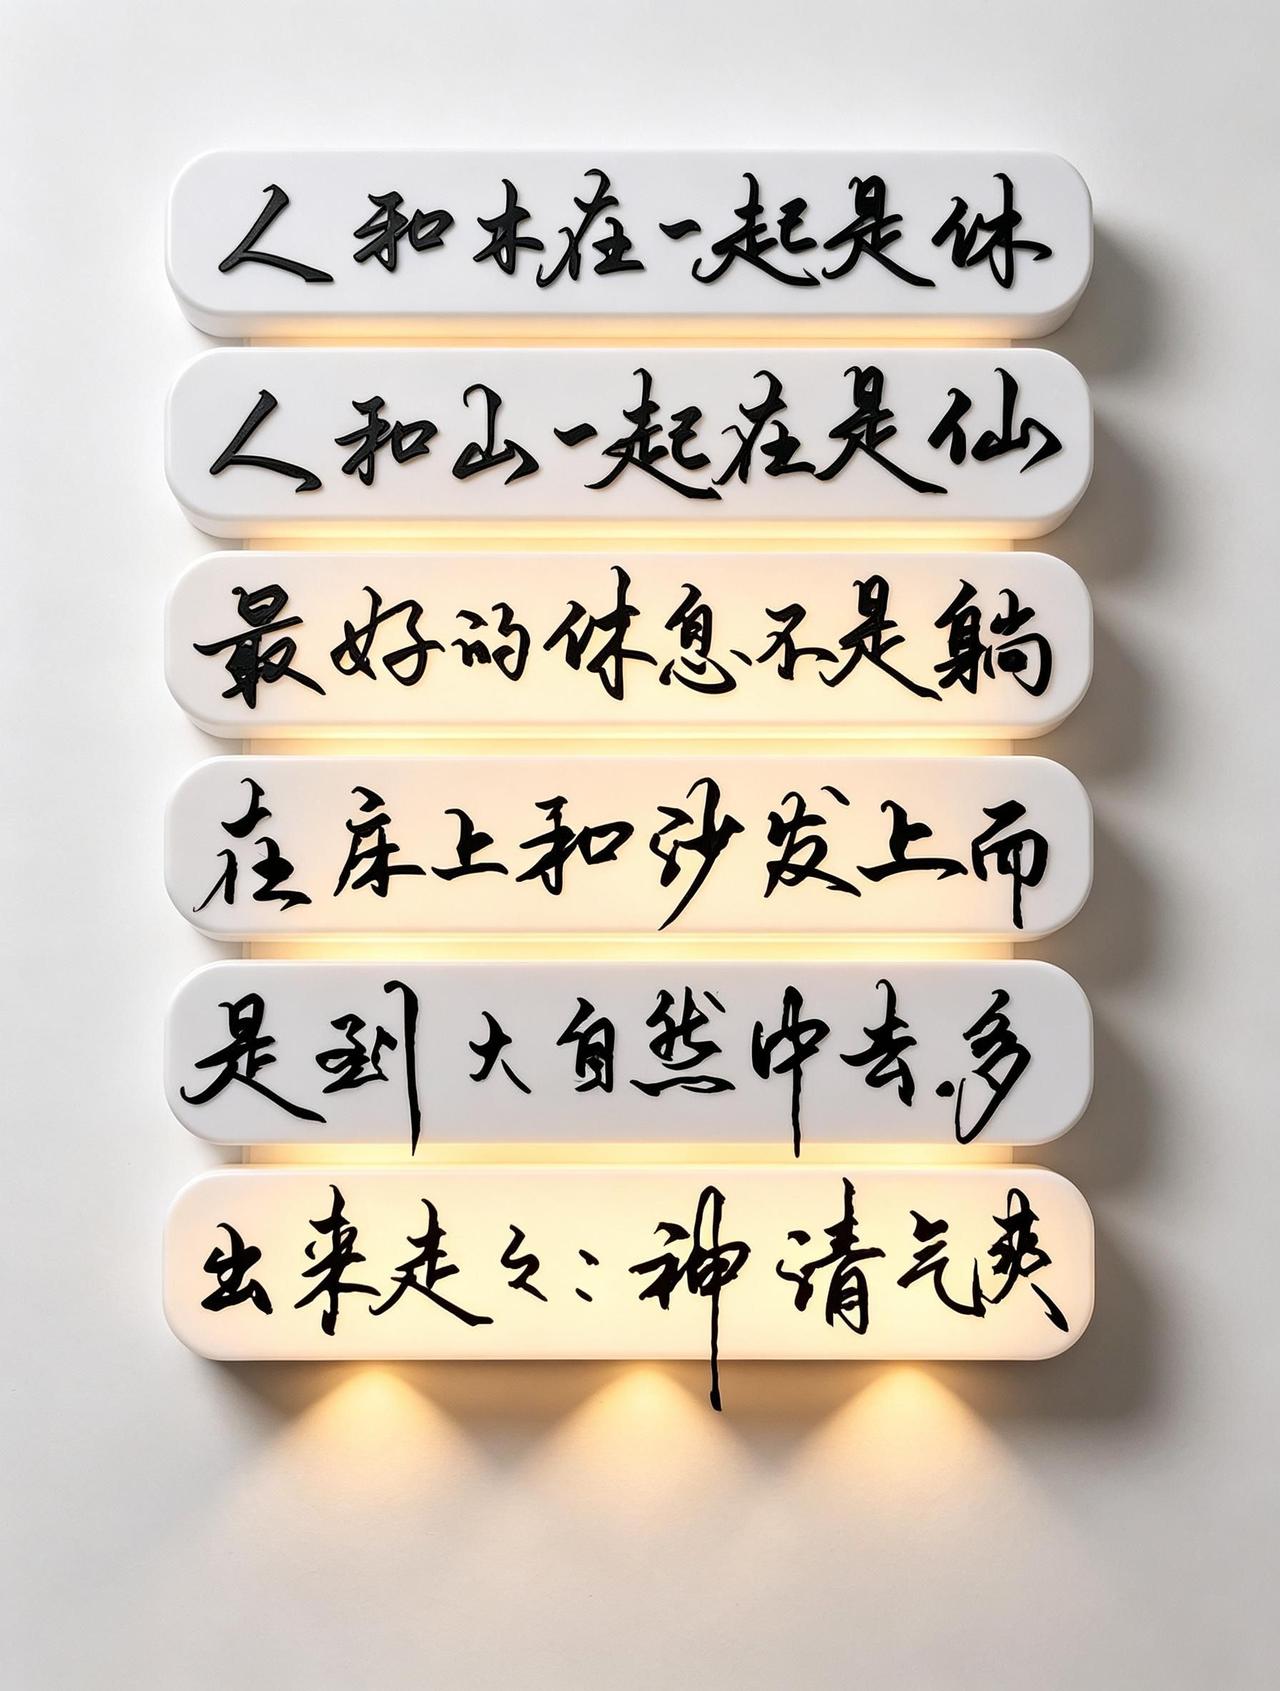 人和木在一起是休
人和山一起在是仙
最好的休息不是躺
在床上和沙发上而
是到大自然中去.多
出来走々:神清气爽